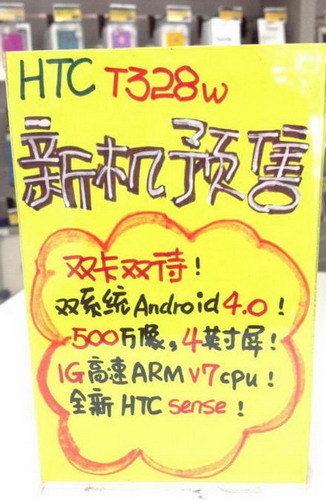 HTC T328w
新机预售
双卡双待！
双系统Android 4.0！
500万像，4英寸屏！
1G高速ARM V7cpu！
全新 HTC sense！